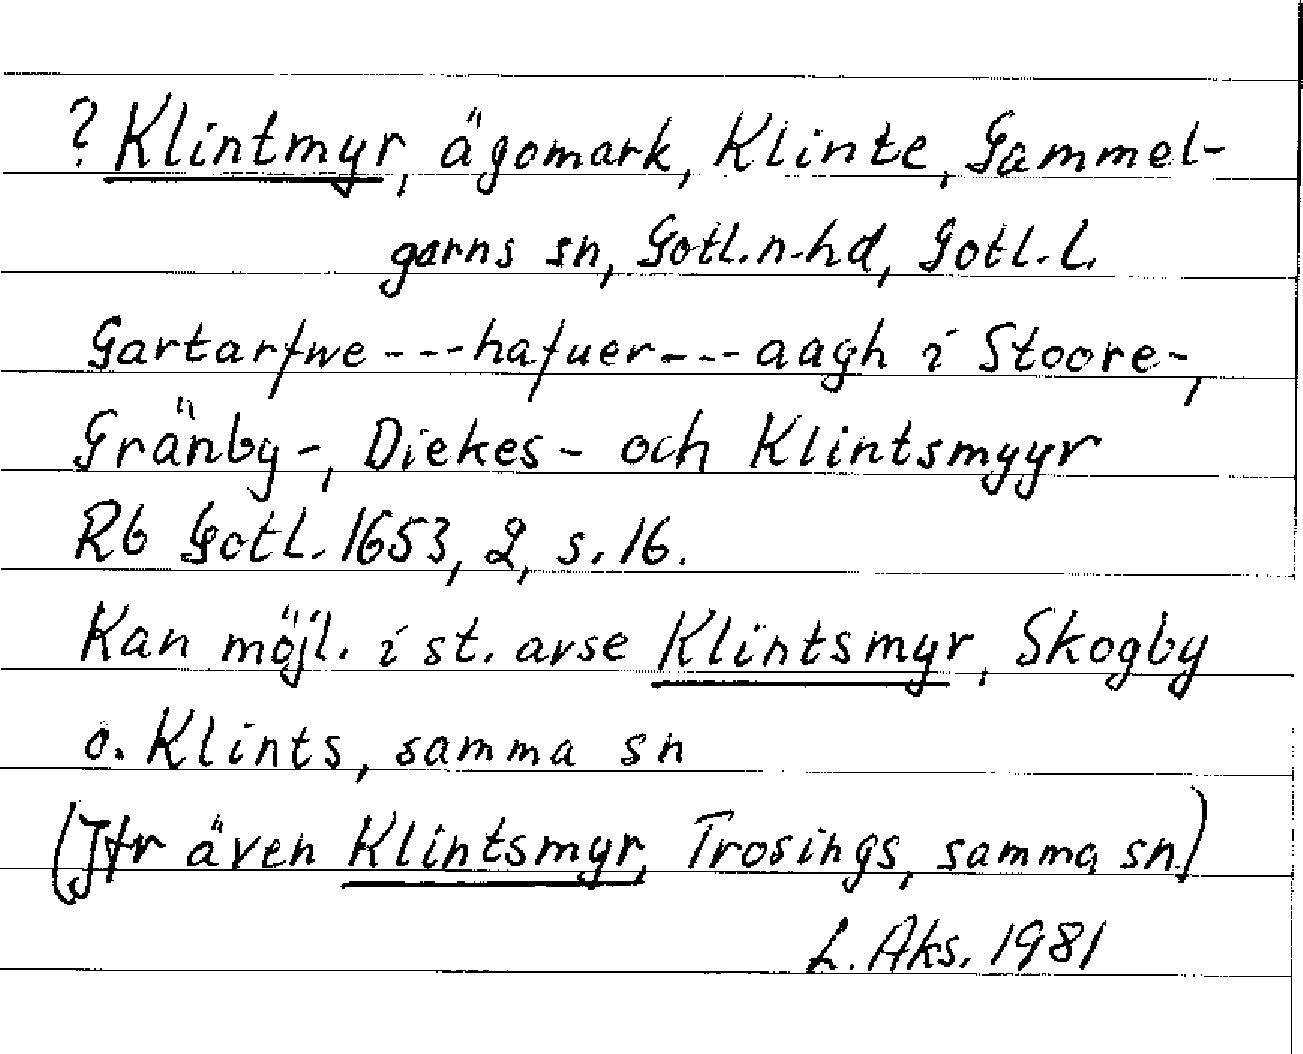 ? Klintmyr, ägomark, Klinte, Gammel-
garns sn, Gotl.n.hd, Gotl.l.
Gartarfwe---hafuer---aagh i Stoore-,
Gränby-, Diekes- och Klintsmyyr
Rb Gotl. 1653, 2, s. 16.
Kan möjl. i st. avse Klintsmyr, Skogby
o. Klints, samma sn
(Jfr även Klintsmyr, Trosings, samma sn)
L. Aks. 1981